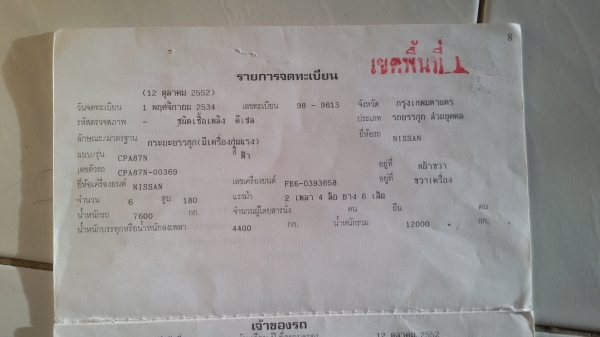 8
เขตพื้นที่ 1
รายการจดทะเบียน
(12 ตุลาคม 2552)
วันจดทะเบียน 1 พฤศจิกายน 2534 เลขทะเบียน 98 - 9613 จังหวัด กรุงเทพมหานคร
รหัสตรวจสภาพ - ชนิดเชื้อเพลิง ดีเซล ประเภท รถบรรทุก ส่วนบุคคล
ลักษณะ/มาตรฐาน กระบะบรรทุก(มีเครื่องทุ่นแรง) ยี่ห้อรถ NISSAN
แบบ/รุ่น CPA87N สี ฟ้า
เลขตัวรถ CPA87N-00369 อยู่ที่ หน้าขวา
ยี่ห้อเครื่องยนต์ NISSAN เลขเครื่องยนต์ FE6-0393658 อยู่ที่ ขวาเครื่อง
จำนวน 6 สูบ 180 แรงม้า 2 เพลา 4 ล้อ ยาง 6 เส้น
น้ำหนักรถ 7600 กก. จำนวนผู้โดยสารนั่ง คน ยืน คน
น้ำหนักบรรทุกหรือน้ำหนักลงเพลา 4400 กก. น้ำหนักรวม 12000 กก.
เจ้าของรถ
12 ตุลาคม 2552